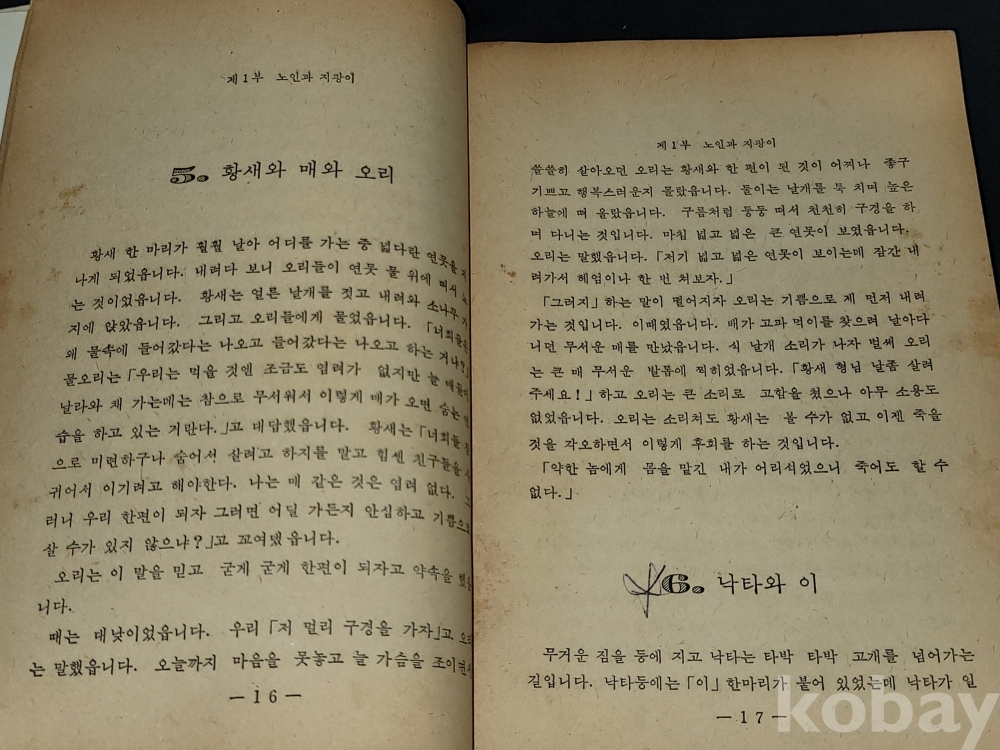 제 1 부 노인과 지팡이
5. 황새와 매와 오리
황새 한 마리가 훨훨 날아 어디를 가는 중 넓다란 연못을 지
나게 되었읍니다. 내려다 보니 오리들이 연못 물 위에 떠서 노
는 것이었읍니다. 황새는 얼른 날개를 젓고 내려와 소나무 가
지에 앉았읍니다. 그리고 오리들에게 물었읍니다. 「너희들은
왜 물속에 들어갔다는 나오고 들어갔다는 나오고 하는 거냐?」
물오리는 「우리는 먹을 것엔 조금도 염려가 없지만 늘 매들이
날라와 채 가는데는 참으로 무서워서 이렇게 매가 오면 숨는
습을 하고 있는 거란다.」고 대답했읍니다. 황새는 「너희들
으로 미련하구나 숨어서 살려고 하지를 말고 힘센 친구들을 사
귀어서 이기려고 해야한다. 나는 매 같은 것은 염려 없다. 그
러니 우리 한편이 되자 그러면 어딜 가든지 안심하고 기쁨으로
살 수가 있지 않으냐?」고 꼬여댔읍니다.
오리는 이 말을 믿고 굳게 굳게 한편이 되자고 약속을 했읍
니다.
때는 대낮이었읍니다. 우리 「저 멀리 구경을 가자」고 오리
는 말했읍니다. 오늘까지 마음을 못놓고 늘 가슴을 조이면서
— 16 —
제 1 부 노인과 지팡이
쓸쓸히 살아오던 오리는 황새와 한 편이 된 것이 어찌나 종구
기쁘고 행복스러운지 몰랐읍니다. 둘이는 날개를 툭 치며 높은
하늘에 떠 올랐읍니다. 구름처럼 둥둥 떠서 천천히 구경을 하
며 다니는 것입니다. 마침 넓고 넓은 큰 연못이 보였읍니다.
오리는 말했읍니다. 「저기 넓고 넓은 연못이 보이는데 잠간 내
려가서 헤엄이나 한 번 쳐보자.」
「그러지」 하는 말이 떨어지자 오리는 기쁨으로 제 먼저 내려
가는 것입니다. 이때였읍니다. 배가 고파 먹이를 찾으려 날아다
니던 무서운 매를 만났읍니다. 식 날개 소리가 나자 벌써 오리
는 큰 매 무서운 발톱에 찍히었읍니다. 「황새 형님 날좀 살려
주세요!」 하고 오리는 큰 소리로 고함을 쳤으나 아무 소용도
없었읍니다. 오리는 소리쳐도 황새는 볼 수가 없고 이젠 죽을
것을 각오하면서 이렇게 후회를 하는 것입니다.
「약한 놈에게 몸을 맡긴 내가 어리석었으니 죽어도 할 수
없다.」
6. 낙타와 이
무거운 짐을 등에 지고 낙타는 타박 타박 고개를 넘어가는
길입니다. 낙타등에는 「이」 한마리가 붙어 있었는데 낙타가 일
— 17 —
kobay